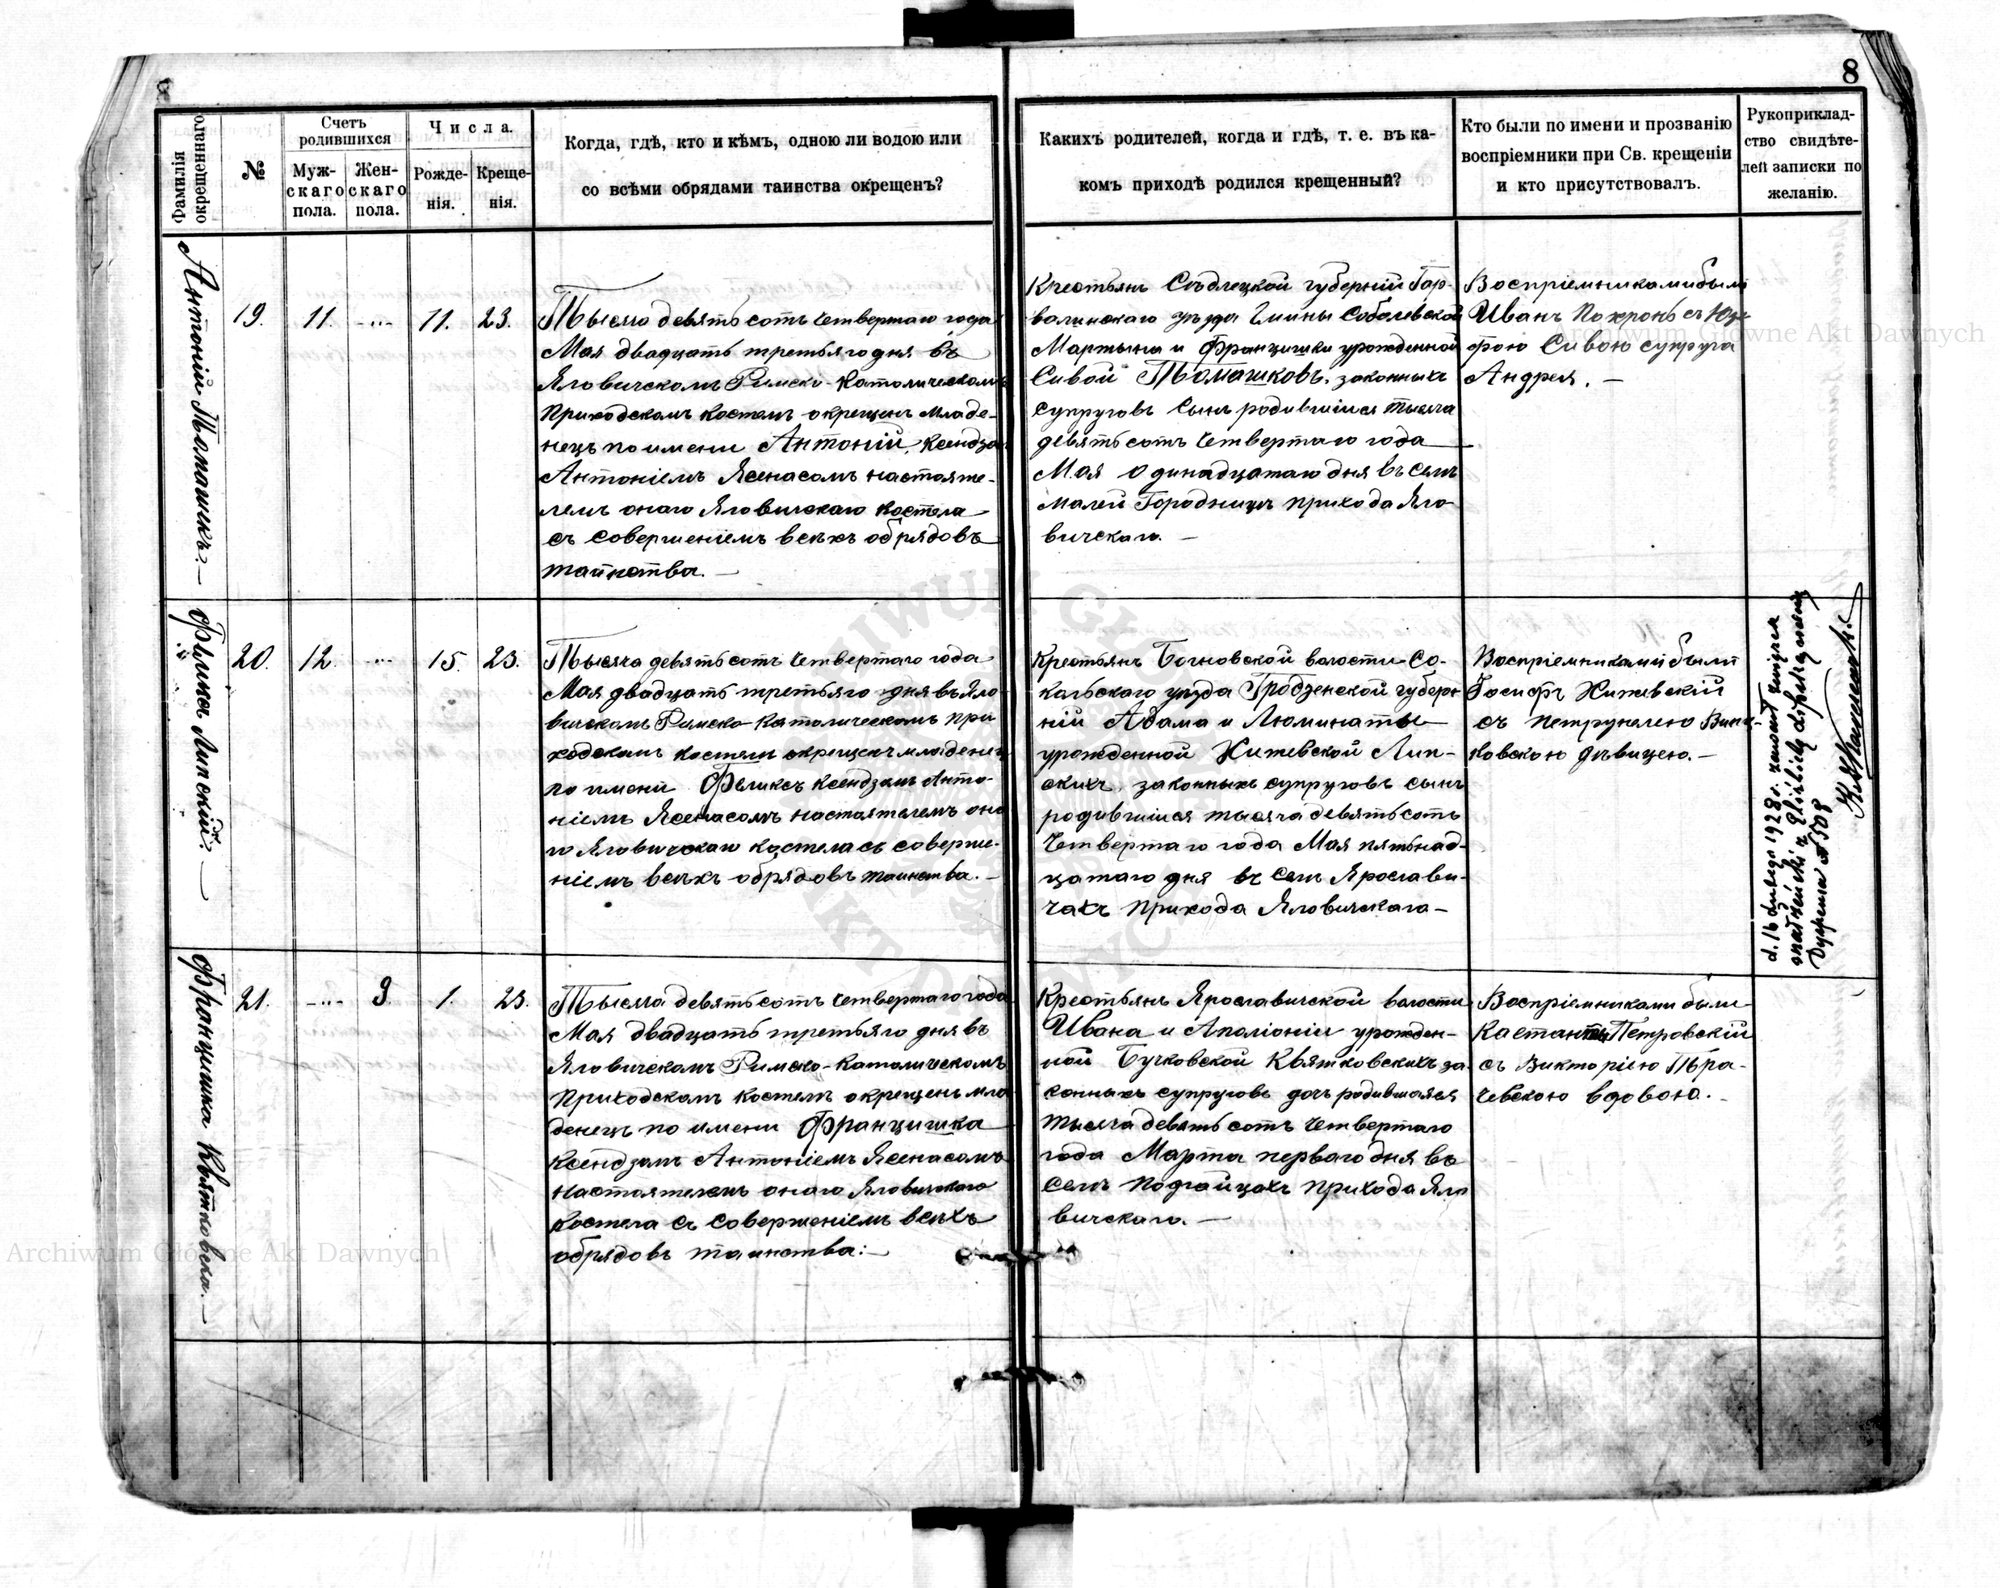 8
8
Фамилія окрещеннаго.
№
Счетъ родившихся
Муж-
скаго
пола.
Жен-
скаго
пола.
Числа.
Рожде-
нія.
Креще-
нія.
Когда, гдѣ, кто и кѣмъ, одною ли водою или
со всѣми обрядами таинства окрещенъ?
Какихъ родителей, когда и гдѣ, т. е. въ ка-
комъ приходѣ родился крещенный?
Кто были по имени и прозванію
воспріемники при Св. крещеніи
и кто присутствовалъ.
Рукоприклад-
ство свидѣте-
лей записки по
желанію.
Антоній Томашекъ. —
19.
11.
11.
23.
Тысяча девятьсотъ четвертаго года
Мая двадцать третьяго дня въ
Яловичскомъ Римско-Католическомъ
приходскомъ костелѣ окрещенъ младе-
нецъ по имени Антоній, Ксендзомъ
Антоніемъ Ясенасомъ настояте-
лемъ онаго Яловичскаго костела
съ совершеніемъ всѣхъ обрядовъ
таинства. —
Крестьянъ Сѣдлецкой губерніи Гар-
волинскаго уѣзда Гмины Соболевской
Мартына и Францишки урожденной
Сивой Томашковъ, законныхъ
супруговъ сынъ родившійся тысяча
девятьсотъ четвертаго года
Мая одинадцатаго дня въ селѣ
Малей Городницѣ прихода Яло-
вичскаго. —
Воспріемниками были
Иванъ Покропъ съ Юзе-
фою Сивою супруга
Андрея. —
Феликсъ Липскій. —
20.
12.
15.
23.
Тысяча девятьсотъ четвертаго года
Мая двадцать третьяго дня въ Яло-
вичскомъ Римско-Католическомъ при-
ходскомъ костелѣ окрещенъ младенецъ
по имени Феликсъ Ксендзомъ Анто-
ніемъ Ясенасомъ настоятелемъ она-
го Яловичскаго костела съ соверше-
ніемъ всѣхъ обрядовъ таинства. —
Крестьянъ волости Со-
кольскаго уѣзда Гродненской губер-
ніи Адама и Люминаты
урожденной Житевской Лип-
скихъ, законныхъ супруговъ сынъ
родившійся тысяча девятьсотъ
четвертаго года Мая пятьнад-
цатаго дня въ селѣ Ярослави-
чахъ прихода Яловичскаго —
Воспріемниками были
Іосифъ Житевскій
съ Петрунелею
ковскою дѣвицею. —
d. 16 lutego 1928 r. zawarł związek
małżeński z
№ 508
Францишка Квятковска. —
21.
9.
1.
23.
Тысяча девятьсотъ четвертаго года
Мая двадцать третьяго дня въ
Яловичскомъ Римско-Католическомъ
приходскомъ костелѣ окрещенъ мла-
денецъ по имени Францишка
Ксендзомъ Антоніемъ Ясенасомъ
настоятелемъ онаго Яловичскаго
костела съ совершеніемъ всѣхъ
обрядовъ таинства. —
Крестьянъ Ярославичской волости
Ивана и Аполіоніи урожден-
ной Бучковской Квятковскихъ за-
конныхъ супруговъ дочь родившаяся
тысяча девятьсотъ четвертаго
года Марта перваго дня въ
селѣ Подгайцахъ прихода Яло-
вичскаго. —
Воспріемниками были
Петровскій
съ Викторіею Гра-
чевскою вдовою. —
Archiwum Główne Akt Dawnych
Archiwum Główne Akt Dawnych